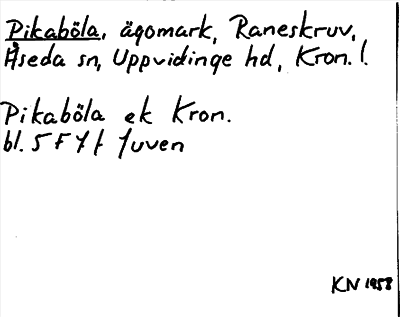 Pikaböla, ägomark, Raneskruv,
Åseda sn, Uppvidinge hd, Kron. l.
Pikaböla ek Kron.
bl. 5 F 7 f Juven
KN 1958